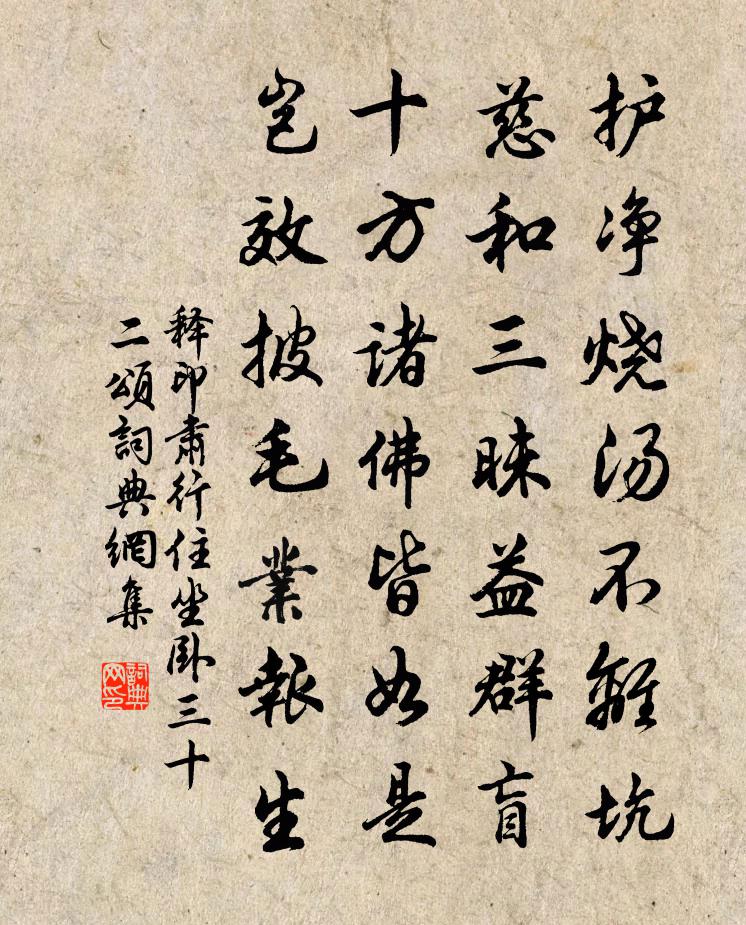 护净烧汤不離坑
慈和三昧益群盲
十方諸佛皆如是
岂效披毛業報生
释印肃行住坐卧三十
二頌詞典網集
詞典网印